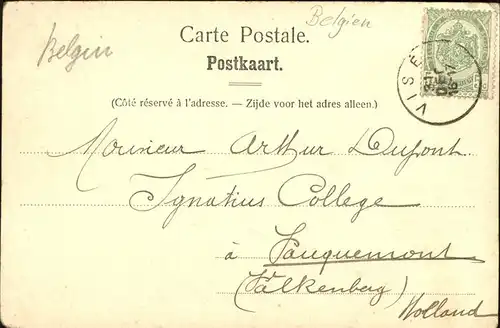 Belgien
Belgin
Carte Postale.
Postkaart.
(Côté réservé à l'adresse. — Zijde voor het adres alleen.)
VISE
31
DEC
16-17
Monsieur Arthur Dupont
Ignatius College
à Fauquemont
(Valkenberg)
Holland